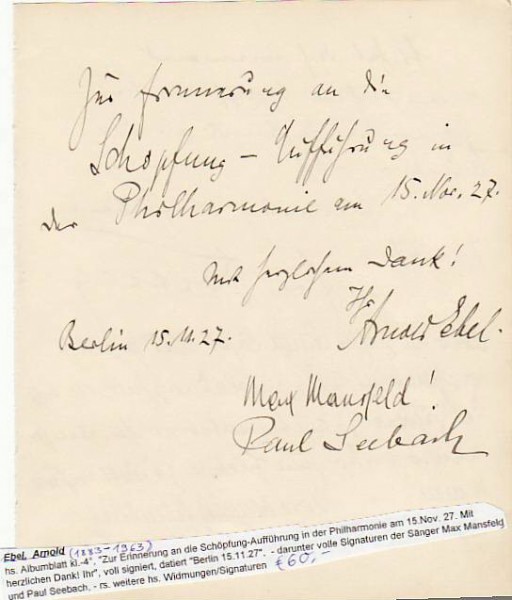 Zur Erinnerung an die
Schöpfung - Aufführung in
der Philharmonie am 15. Nov. 27.
Mit herzlichem Dank!
Ihr
Arnold Ebel.
Berlin 15.11.27.
Max Mansfeld!
Paul Seebach
Ebel, Arnold (1883-1963)
hs. Albumblatt kl.-4°, "Zur Erinnerung an die Schöpfung-Aufführung in der Philharmonie am 15.Nov. 27. Mit
herzlichen Dank! Ihr", voll signiert, datiert "Berlin 15.11.27". - darunter volle Signaturen der Sänger Max Mansfeld
und Paul Seebach, - rs. weitere hs. Widmungen/Signaturen €60,-